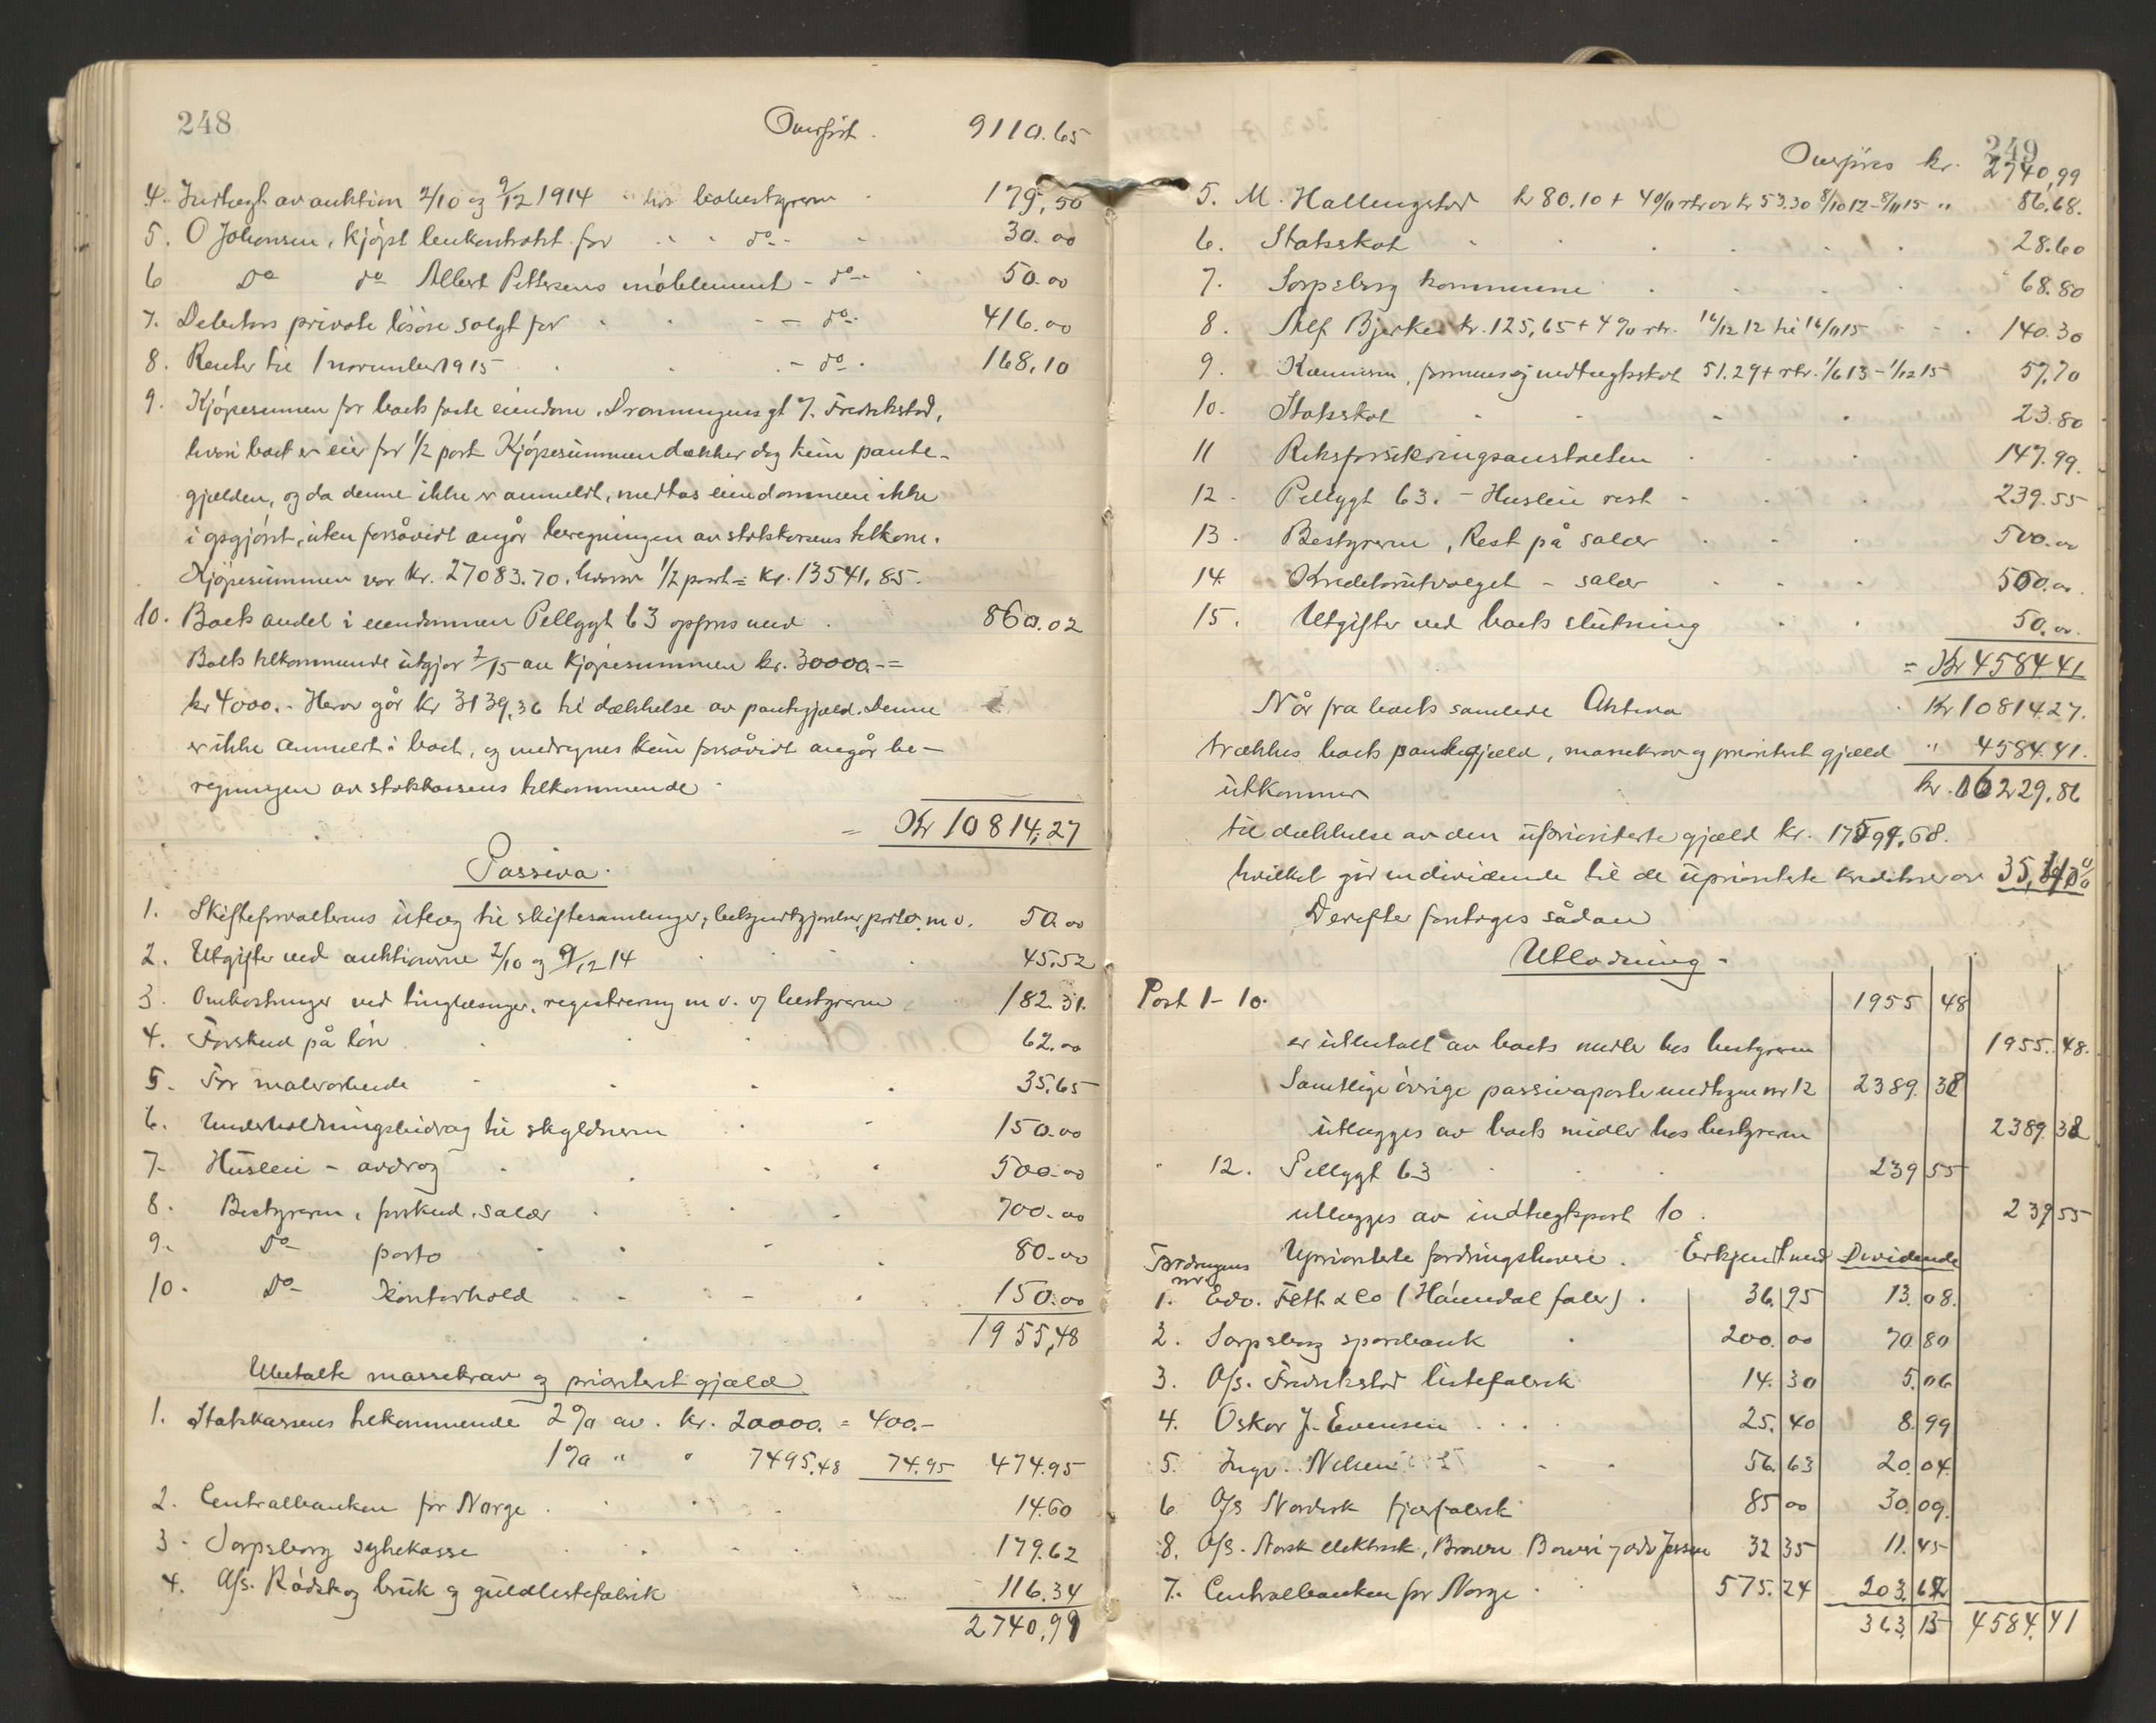 248
Overført. 9110.65
4. Indtægt av auktion 2/10 og 9/12 1914 hos bobestyreren 179,50
5. O Johansen, kjøpt leukontrakt for " " do - 30.00
6 Do do Albert Pettersens møblement - do - 50.00
7. Debitors private løsøre solgt for - do - 416.00
8. Renter til 1 november 1915 - do - 168,10
9. Kjøpesummen for boets faste eiendom, Dronningens gt 7. Fredrikstad,
hvori boet er eier for 1/2 part. Kjøpesummen dækker dog kun pante-
gjælden, og da denne ikke er anmeldt, medtas eiendommen ikke
i opgjøret, uten forsåvidt angår beregningen av statskassens tilkom.
Kjøpesummen var kr. 27083.70. hvorav 1/2 part = kr. 13541,85.
10. Boets andel i eiendommen Pellygt 63 opføres med 860.02
Boets tilkommende utgjør 2/15 av kjøpesummen kr. 30000.- =
kr 4000.- Herav går kr 3139,36 til dækkelse av pantegjæld. Denne
er ikke anmeldt i boet, og medregnes kun forsåvidt angår be-
regningen av statskassens tilkommende
= Kr 10814,27
Passiva.
1. Skifteforvalterens utlæg til skiftesamlinger, bekjendtgjørelser, porto m v. 50.00
2. Utgifter ved auktionerne 2/10 og 9/12 14 45,52
3. Omkostninger ved tinglæsninger, registrering m v. v/ bestyreren 182.31.
4. Forskud på løn 62.00
5. For malerarbeide 35.65
6. Underholdningsbidrag til skyldneren 150.00
7. Husleie - avdrag 500.00
8. Bestyreren, forskud, salær 700.00
9. Do porto 80.00
10. Do Kontorhold 150.00
1955,48
Ubetalte massekrav og prioritert gjæld
1. Statskassens tilkommende 2% av. kr. 20000. = 400.-
1% " " 7495,48 74.95 474.95
2. Centralbanken for Norge 14.60
3. Sarpsborg sykekasse 179.62
4. A/s. Rådskog bruk og guldlistefabrik 116.34
2740,99
249
Overføres kr. 2740,99
5. M. Hallingstad kr 80.10 + 4% rtr av kr 53.30 8/10 12 - 8/11 15 " 86.68.
6. Statsskat 28.60
7. Sarpsborg kommune 68.80
8. Alf Bjerke kr. 125,65 + 4% rtr. 16/12 12 til 16/11 15 140.30
9. Kæmneren, formues og indtægtsskat 51.29 + rtr. 1/6 13 - 1/12 15 57,70
10. Statsskat 23.80
11 Riksforsikringsanstalten 147.99.
12 - Pellygt 63. - Husleie rest - 239.55
13. Bestyreren, Rest på salær 500.00
14. Kreditorutvalget - salær 500.00.
15. Utgifter ved boets slutning 50.00.
= Kr 4584.41
Når fra boets samlede Aktiva Kr 10814.27.
trækkes boets pantegjæld, massekrav og prioritert gjæld " 4584.41.
utkommer kr. 6229,86
til dækkelse av den uprioriterte gjæld kr. 17594,68.
hvilket gir en dividende til de uprioriterte kreditorer av 35,40%
Derefter foretages sådan
Utlodning -
Post 1-10. 1955 48
er utbetalt av boets midler hos bestyreren 1955.48.
Samtlige øvrige passivaposter undtagen nr 12 2389.38
utlægges av boets midler hos bestyreren 2389.38
" 12. Pellygt 63 239 55
utlægges av indtægtspost 10. 239 55
Fordringens nr. Uprioriterte fordringshavere. Erkjendt med Dividende
1. Edv. Fett & Co (Hånndal faler) . 36.95 13.08.
2. Sarpsborg sparebank 200.00 70.80
3. A/s. Fredrikstad listefabrik 14.30 5.06
4. Oskar J. Evensen 25.40 8.99
5. Ingv. Nilsen 56.63 20.04.
6. A/s Nordisk fjærfabrik 85 00 30.09.
8. A/s. Norsk elektrisk, Brown Boveri v/ adv Jessen 32 35 11.45
7. Centralbanken for Norge 575.24 203.62
363,13 4584,41